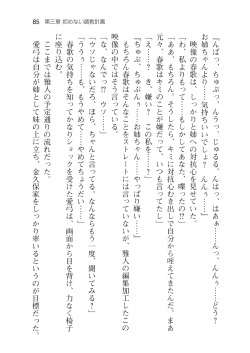 85　第三章 抑のない調教計画
「んはっ、ちゅぷ、んうっ、じゅるる、んはっ……はあぁ……んっ、んんぅ……どう？
お姉ちゃんより……気持ちいいでしょ？　んんぅ……」
映像の春歌は、しっかりと姉への対抗心を見せていた。
「わっ、私よりもって……もしかしてあなた、喋ったの!?」
「ああぁ、もちろん。そしたら春歌が、キミに対抗心むき出しで自分から咥えてきたんだ。まぁ
元々、春歌はキミのことが嫌いだって、いつも言ってたしな」
「えっ……？　き、嫌い？　この私を……？」
「ちゅぷ、んんぅ……お姉ちゃん……やっぱり嫌い……」
もちろん春歌はそんなことをストレートには言っていないが、雅人の編集加工したこの
映像の中では、そう言っている。
「な、なんでっ!?　ウソ……」
「ウソじゃないだろ。ほら、ちゃんと言ってる。なんならもう一度、聞いてみる？」
「ううぅ……も、もう……いいわ……」
春歌の気持ちを知ってかなりショックを受けた愛弓は、画面から目を背け、力なく椅子
に座り込む。
ここまでは雅人の予定通りの流れだった。
愛弓は自分が姉として妹の上に立ち、金久保家をしっかり率いるというのが目標だった。